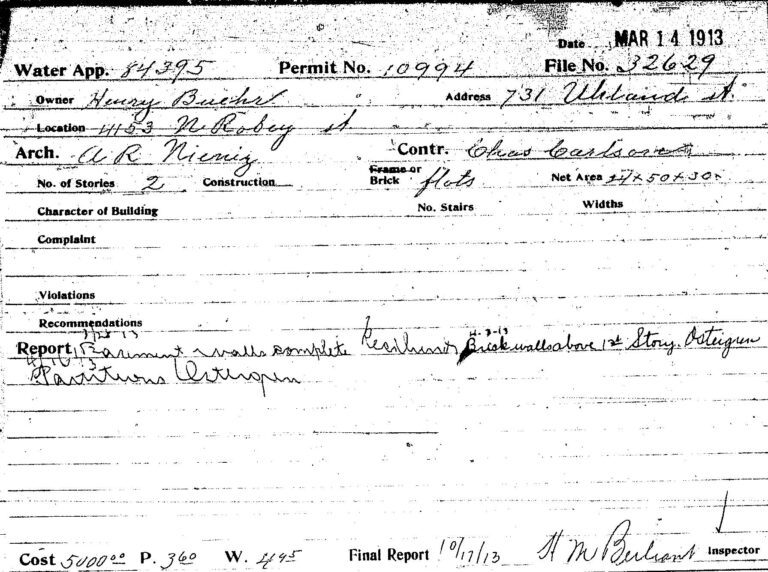 Date MAR 14 1913
Water App. 84395 Permit No. 10994 File No. 32629
Owner Henry Buehr Address 731 Uhland st.
Location 4153 N Robey st
Arch. A R Contr. Chas Carlson
No. of Stories 2 Construction Frame or Brick flats Net Area x 50 x 30
Character of Building No. Stairs Widths
Complaint
Violations
Recommendations
Report Basement walls complete 4-3-13 Brick walls above 1st Story. Ostergren
Partitions Ostergren
Cost 5000 00 P. 360 W. 495 Final Report 10/17/13 H M Inspector